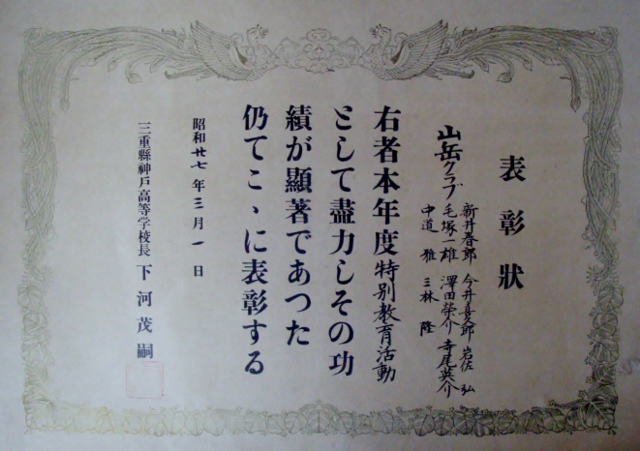 表彰狀
新井春郎 今井喜久郎 岩佐 弘
山岳クラブ 毛塚一雄 澤田榮介 寺尾英介
中道 雅 三林 隆
右者本年度特別教育活動
として盡力しその功
績が顯著であつた
仍てこゝに表彰する
昭和廿七年三月一日
三重縣神戶高等学校長 下河茂嗣